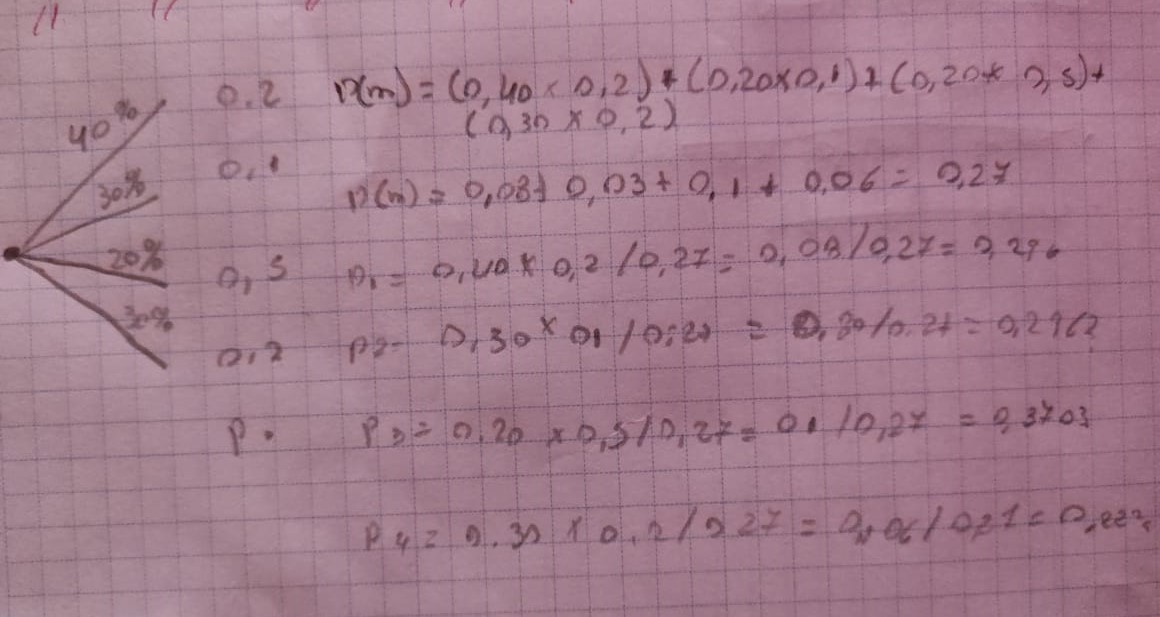 40% 0.2 P(m) = (0,40 × 0,2) + (0,20×0,1) + (0,20 × 0,5) +
(0,30 × 0,2)
30% 0,1
P(m) = 0,08 + 0,03 + 0,1 + 0,06 = 0,27
20% 0,5 P1 = 0,40 × 0,2 / 0,27 = 0,08 / 0,27 = 0,296
30% 0.2 P2 = 0,30 × 01 / 0,27 = 0,30 / 0.27 = 0,2962
P. P3 = 0.20 × 0,5 / 0,27 = 01 / 0,27 = 0,3703
P4 = 0.30 × 0,2 / 0,27 = 0,06 / 0,27 = 0,222